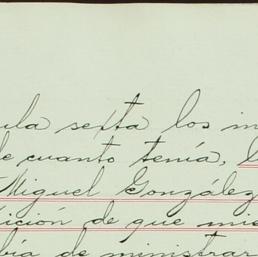 ula sexta los in
de cuanto tenía,
Miguel González
ición de que mie
bía de ministrar